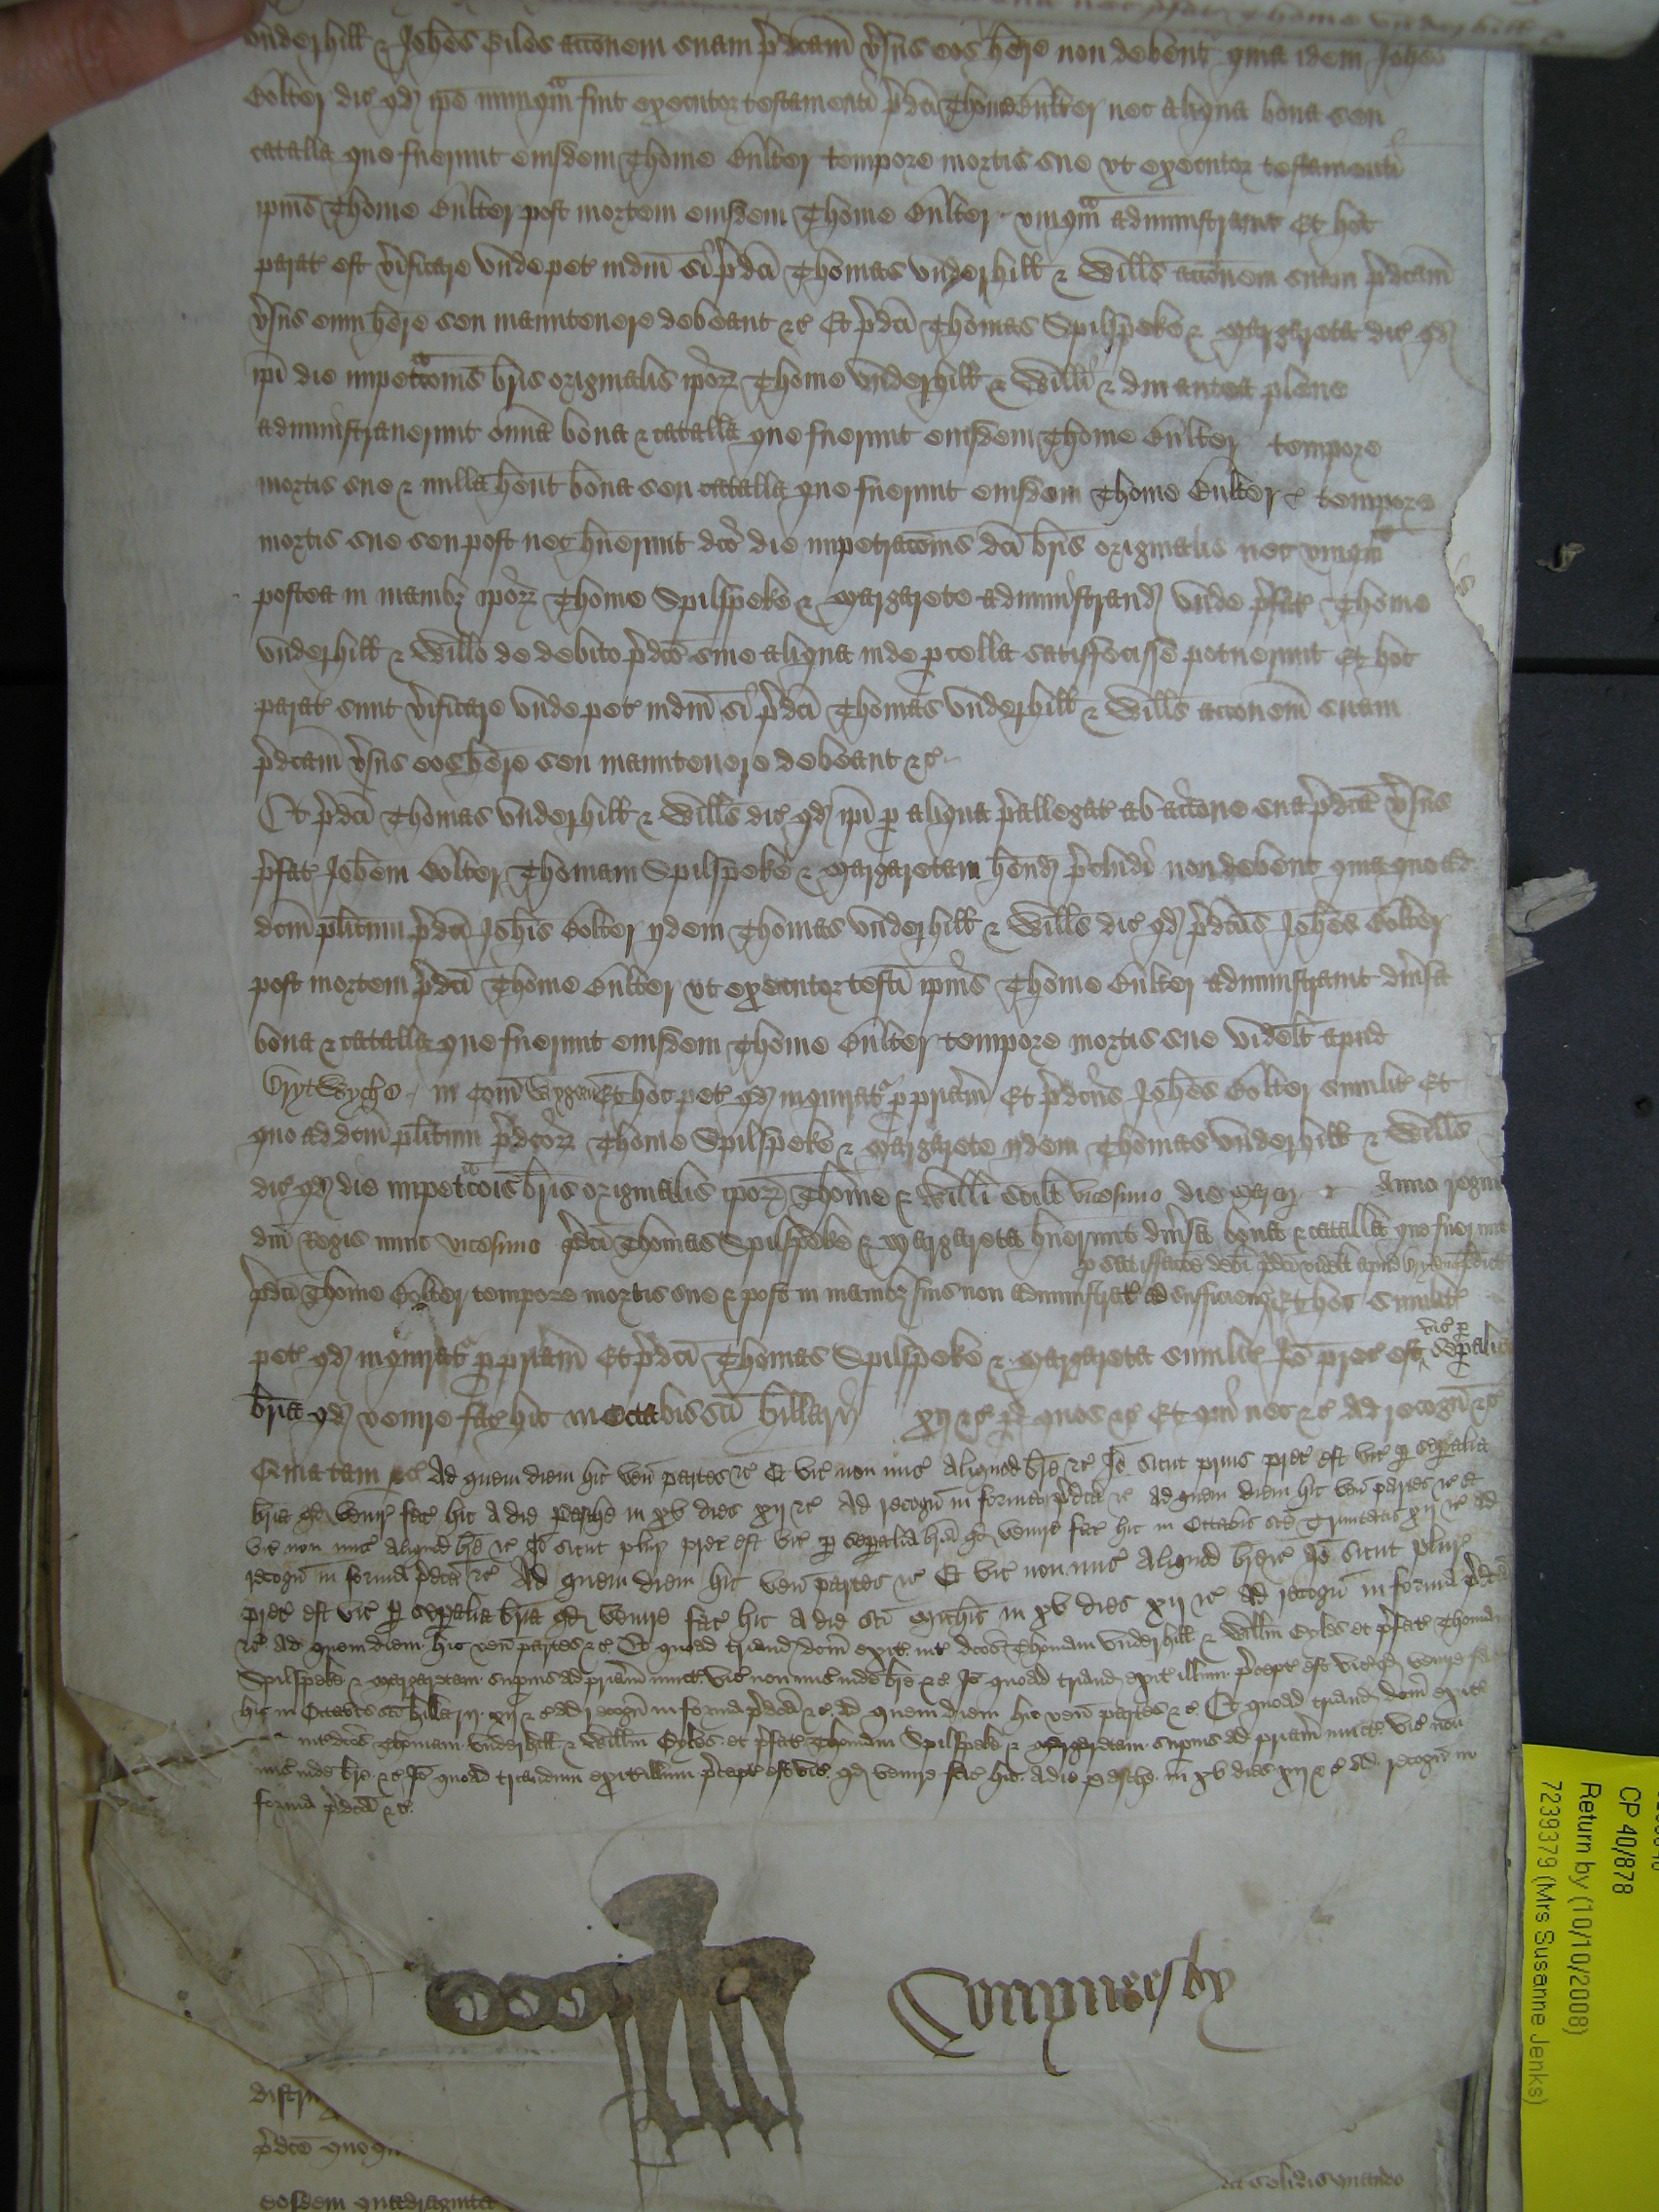 Underhill & Joħes Giles acc̄onem suam p̄dc̄am v̄sus eos h̄ere non debent quia idem Joħes
Colter dic̄ qd̄ ip̄e nunqᵃm fuit executor testamenti p̄dc̄i Thome Culter nec aliqua bona seu
catalla que fuerunt eiusdem Thome Culter tempore mortis sue vt executor testamenti
ip̄ius Thome Culter post mortem eiusdem Thome Culter vnqᵃm administrauit Et hoc
parat̄ est v̄ificare vnde pet̄ iudm̄ si p̄dc̄i Thomas Vnderhill & Will̄s acc̄onem suam p̄dc̄am
v̄sus eum h̄ere seu manutenere debeant &c̄ Et p̄dc̄i Thomas Spilspeke & Margareta dic̄ qd̄
ip̄i die impetᵃc̄onis br̄is originalis ip̄oꝝ Thome Vnderhill & Will̄i & diu antea plene
administrauerunt om̄ia bona & catalla que fuerunt eiusdem Thome Culter tempore
mortis sue & nulla h̄ent bona seu catalla que fuerunt eiusdem Thome Culter tempore
mortis sue seu post nec h̄uerunt dc̄o die impetrac̄onis dc̄i br̄is originalis nec vnqᵃm
postea in manibꝫ ip̄oꝝ Thome Spilspeke & Margarete administrand̄ vnde p̄fat̄ Thome
Vnderhill & Will̄o de debito p̄dc̄o siue aliqua inde ꝑcella satisfecisse potuerunt Et hoc
parat̄ sunt v̄ificare vnde pet̄ iudm̄ si p̄dc̄i Thomas Vnderhill & Will̄s acc̄onem suam
p̄dc̄am v̄sus eos h̄ere seu manutenere debeant &c̄
Et p̄dc̄i Thomas Vnderhill & Will̄s dic̄ qd̄ ip̄i ꝑ aliqua p̄allegat̄ ab acc̄one sua p̄dc̄a v̄sus
p̄fat̄ Joħem Colter Thomam Spilspeke & Margaretam h̄end̄ p̄cludi non debent quia quoad
dc̄m pl̄itum p̄dc̄i Joħis Colter ijdem Thomas Vnderhill & Will̄s dic̄ qd̄ p̄dc̄us Joħes Colter
post mortem p̄dc̄i Thome Culter vt executor testi ip̄ius Thome Culter administrauit diūsa
bona & catalla que fuerunt eiusdem Thome Culter tempore mortis sue videlt̄ apud
Wyche in Com̄ Wygorn Et hoc pet̄ qd̄ inquiratʳ ꝑ pr̄iam Et p̄dc̄us Joħes Colter similit̄ Et
quo ad dc̄m pl̄itum p̄dc̄oꝝ Thome Spilspeke & Margarete ijdem Thomas Vnderhill & Will̄s
dic̄ qd̄ die impetᵃc̄ois br̄is originalis ip̄oꝝ Thome & Will̄i scilt̄ vicesimo die Marcij Anno regni
dn̄i Regis nunc vicesimo p̄dc̄i Thomas Spilspeke & Margareta h̄uerunt diūsa bona & catalla que fuerunt
ꝓ satisfacc̄one debi p̄dc̄i videlt̄ apud
p̄dc̄i Thome Colter tempore mortis sue & post in manibꝫ suis non administrat̄ ad sufficienc̄ Et hoc similit̄
pet̄ qd̄ inquiratʳ ꝑ pr̄iam Et p̄dc̄i Thomas Spilspeke & Margareta similit̄ Jō prec̄ est vic̄ ꝑ seꝑalia
br̄ia qd̄ venire fac̄ hic in Octabis sc̄i Hillarij xij &c̄ ꝑ quos &c̄ Et qui nec &c̄ Ad recogn̄ &c̄
Quia tam &c̄ Ad quem diem hic ven̄ partes &c̄ Et vic̄ non mis̄ aliquod br̄e &c̄ Jō sicut prius prec̄ est vic̄ ꝑ seꝑalia
br̄ia qd̄ venire fac̄ hic a die Pasche in xv dies xij &c̄ Ad recogn̄ in forma p̄dc̄a &c̄ Ad quem diem hic ven̄ partes &c̄ Et
vic̄ non mis̄ aliquod br̄e &c̄ Jō sicut plur̄ prec̄ est vic̄ ꝑ seꝑalia br̄ia qd̄ venire fac̄ hic in Octabis sc̄e Trinitatis xij &c̄ ad
recogn̄ in forma p̄dc̄a &c̄ Ad quem diem hic ven̄ partes &c̄ Et vic̄ non mis̄ aliquod br̄e &c̄ Jō sicut plur̄
prec̄ est vic̄ ꝑ seꝑalia br̄ia qd̄ venire fac̄ hic a die sc̄i Mich̄is in xv dies xij &c̄ ad recogn̄ in forma p̄dc̄a
&c̄ Ad quem diem hic ven̄ partes &c̄ Et quoad triand̄ dc̄m exit̄ int̄ dc̄os Thomam Vnderhill & Will̄m Gyles et p̄fat̄ Thomam
Spilspeke & Margaretam supius ad pr̄iam iunct̄ vic̄ non mis̄ inde br̄e &c̄ Jō quoad triand̄ exit̄ illum p̄cept̄ est vic̄ qd̄ venire fac̄
hic in Octabis sc̄i Hillarij xij &c̄ ad recogn̄ in forma p̄dc̄a &c̄ Ad quem diem hic ven̄ partes &c̄ Et quoad triand̄ dc̄m exit̄
int̄ dc̄os Thomam Vnderhill & Will̄m Gyles et p̄fat̄ Thomam Spilspeke & Margaretam supius ad pr̄iam iunct̄ vic̄ non
mis̄ inde br̄e &c̄ Jō quoad triandum exit̄ illum p̄cept̄ est vic̄ qd̄ venire fac̄ hic a die Pasche in xv dies xij &c̄ ad recogn̄ in
forma p̄dc̄a &c̄
Conyngesby
p̄dc̄o
eosdem quadraginta
CP 40/878
Return by (10/10/2008)
7239379 (Mrs Susanne Jenks)